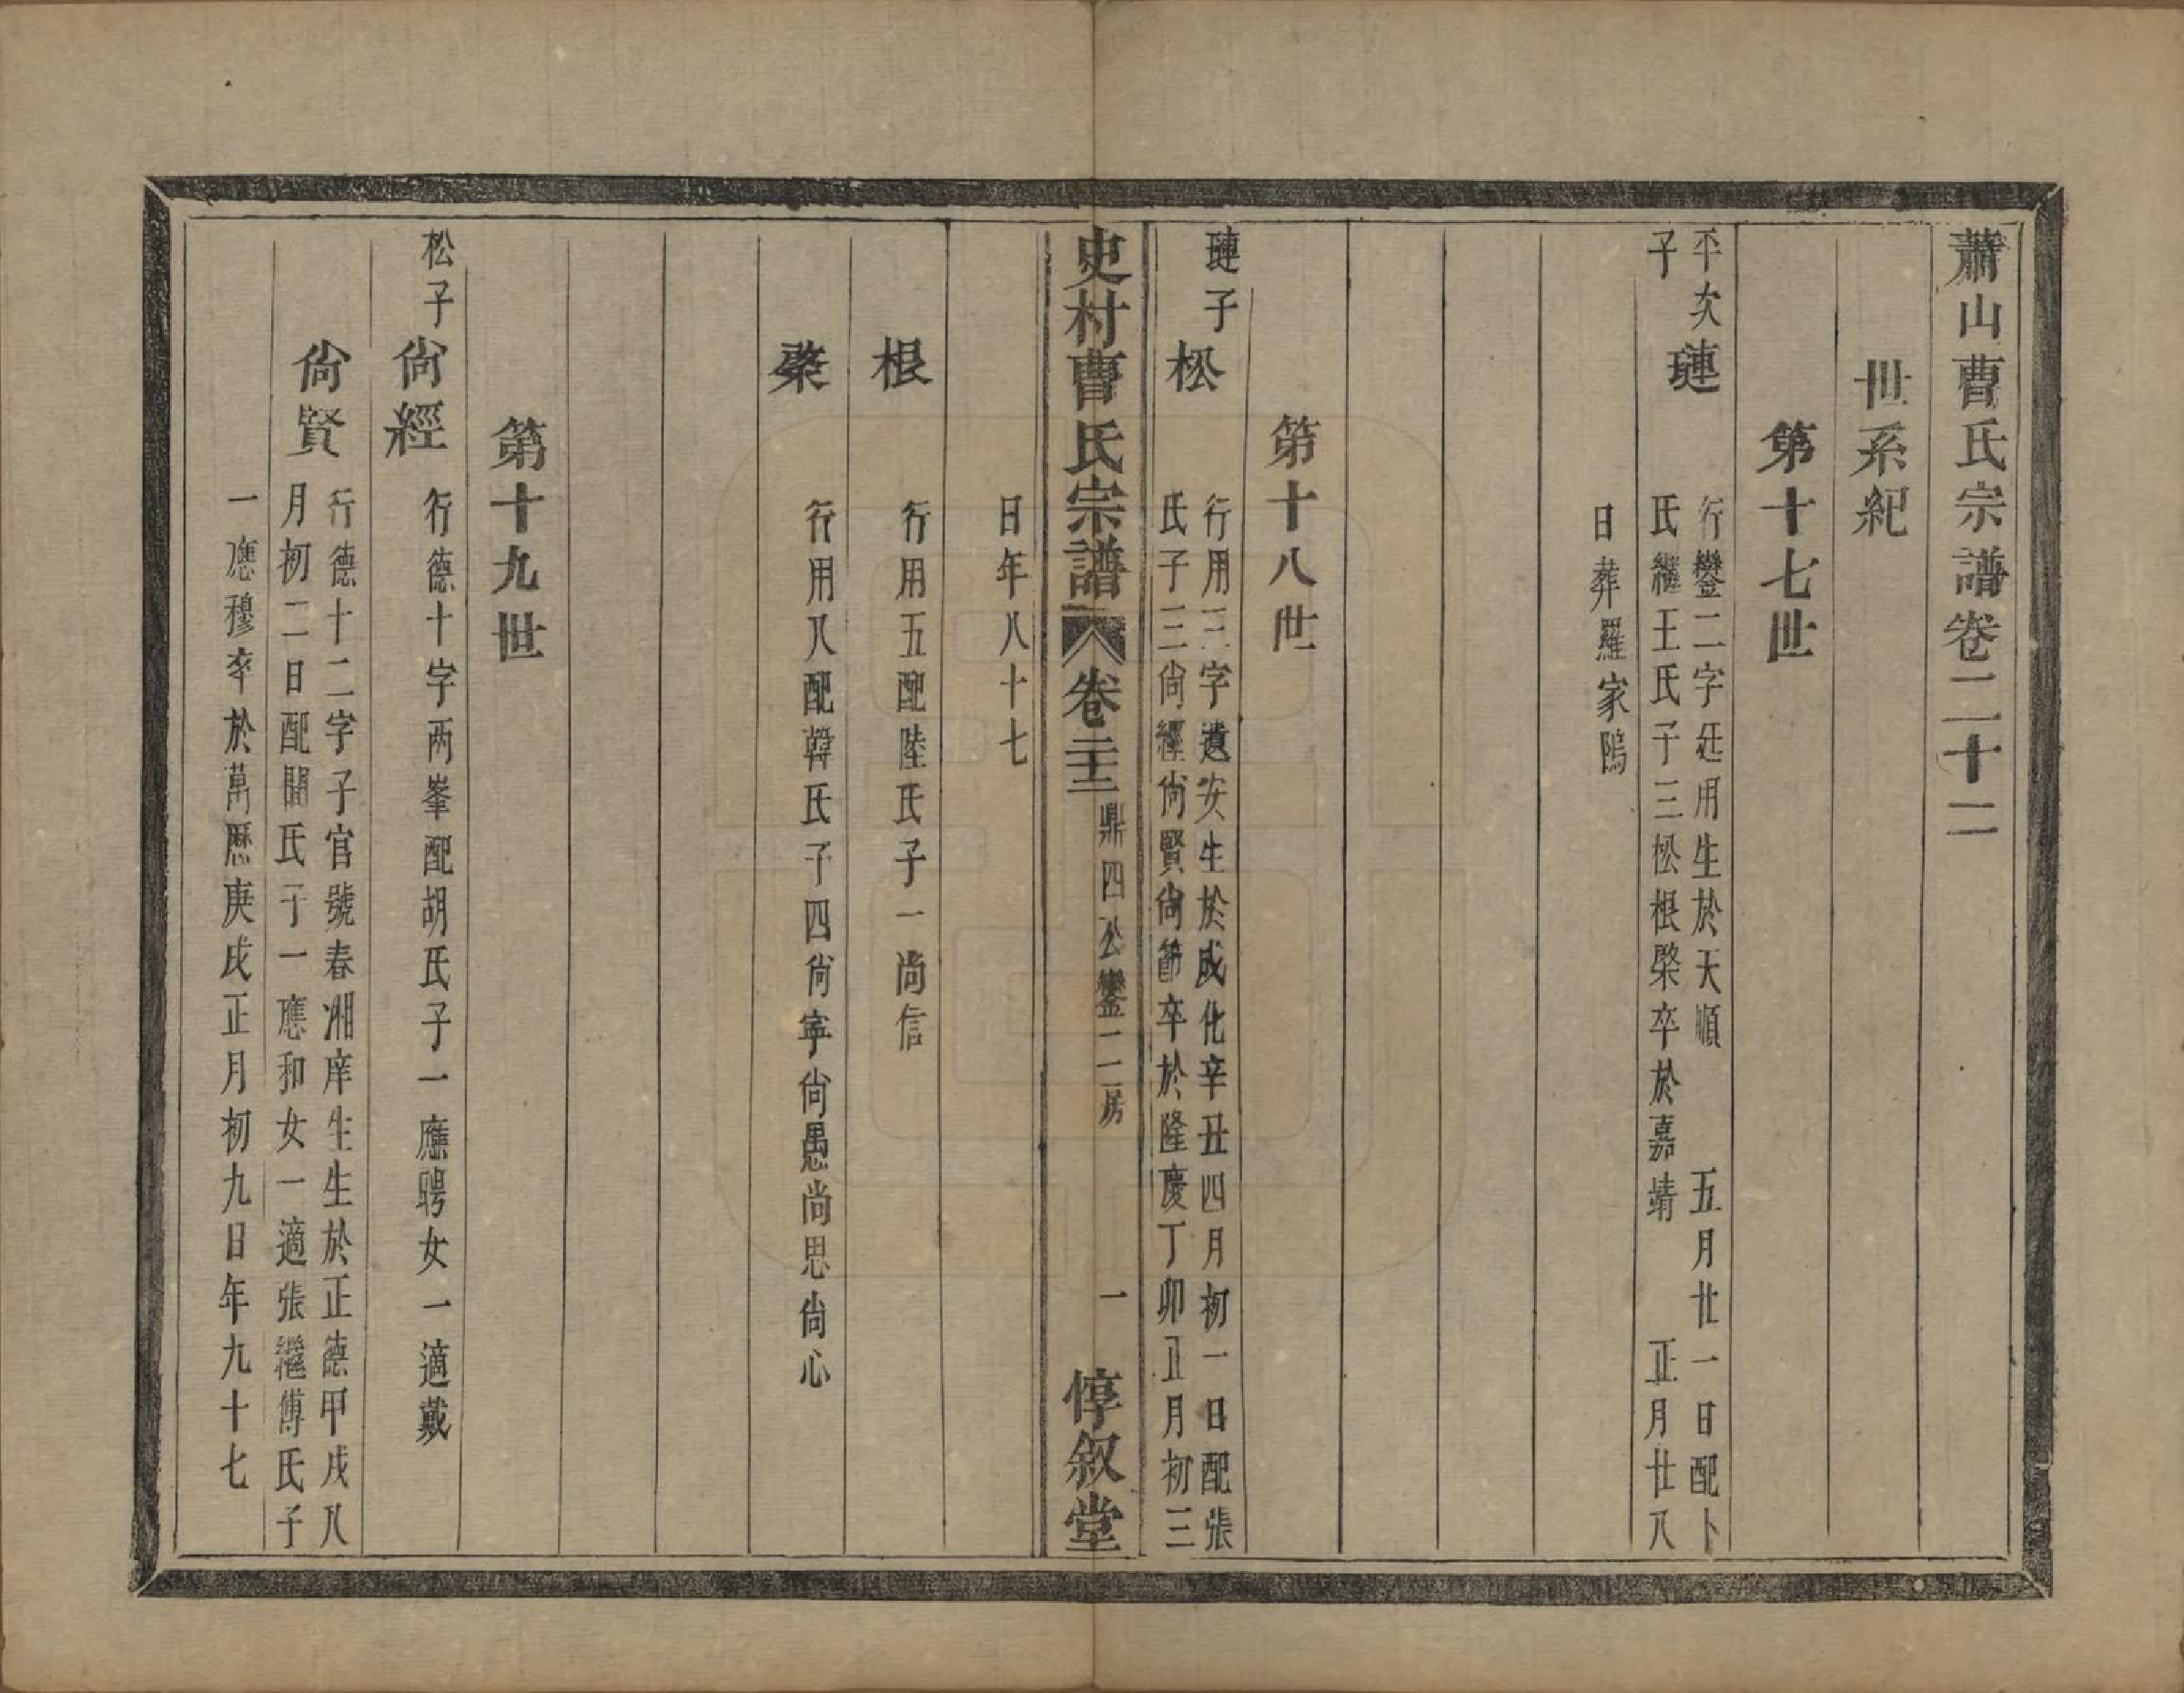 蕭山曹氏宗譜卷二十二
世系紀
第十七世
平次子
璉
行鑾二字廷用生於天順 五月廿一日配卜
氏繼王氏子三松根棨卒於嘉靖 正月廿八
日葬羅家隖
第十八世
璉子
松
行用三字遺安生於成化辛丑四月初一日配張
氏子三尙經尙賢尙節卒於隆慶丁卯正月初三
史村曹氏宗譜 卷二十二 鼎四公鑾二房 一 惇叙堂
日年八十七
根
行用五配陸氏子一尚信
棨
行用八配韓氏子四尙寧尙愚尚思尙心
第十九世
松子
尙經
行德十字两峯配胡氏子一應聘女一適戴
尙賢
行德十二字子官號春湘庠生生於正德甲戌八
月初二日配關氏子一應和女一適張繼傅氏子
一應穆卒於萬歷庚戌正月初九日年九十七